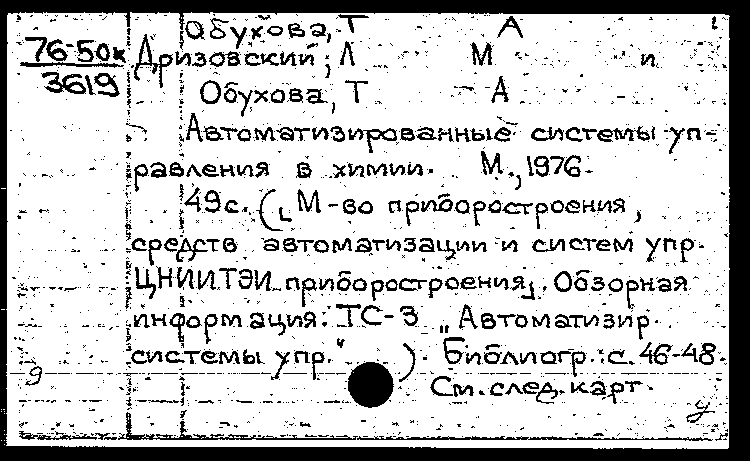 Обухова, Т А
76-50к Дризовский, Л М и
3619
Обухова, Т А
Автоматизированные системы уп-
равления в химии. М., 1976.
49с. (М-во приборостроения,
средств автоматизации и систем упр.
ЦНИИТЭИ приборостроения. Обзорная
информация: ТС-3 "Автоматизир.
системы упр." ). Библиогр.: с. 46-48.
См. след. карт.
9
У